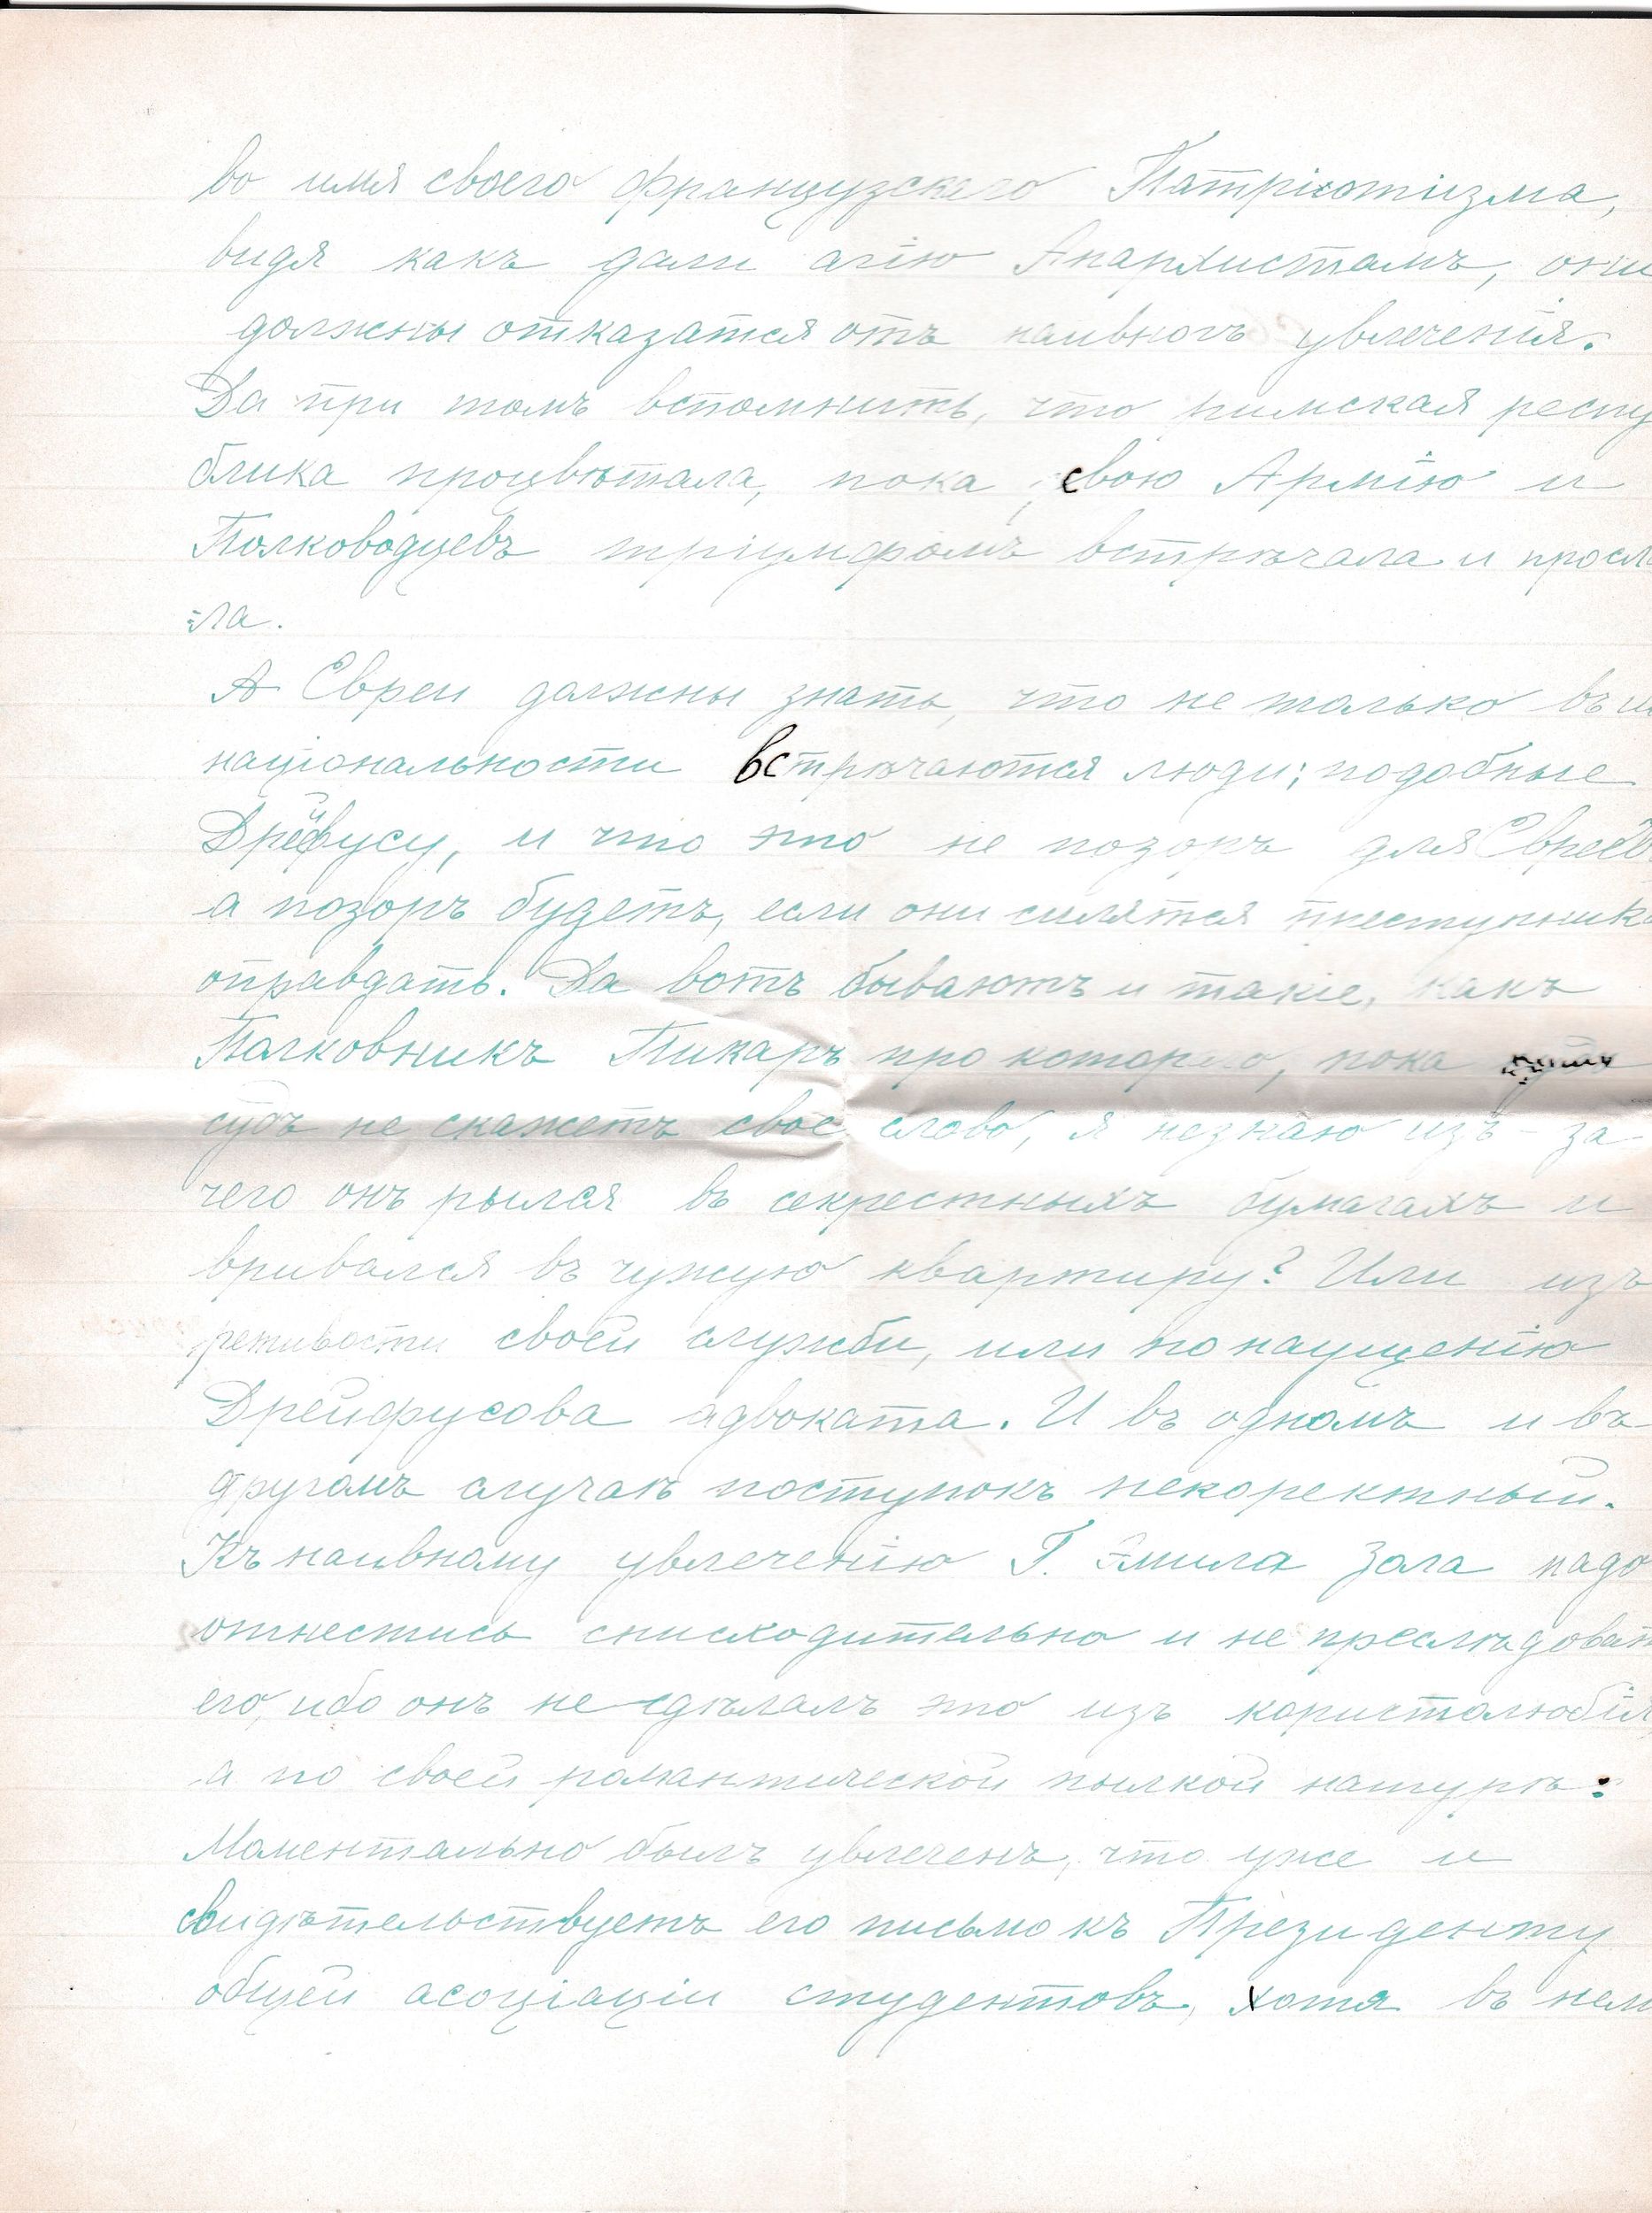 во имя своего французского Патріотизма,
видя какъ дали агію Анархистамъ, они
должны отказатся отъ наивногъ увлеченія.
Да при томъ вспомнить, что римская респу
блика процвѣтала, пока свою Армію и
Полководцевъ тріумфомъ встрѣчала и просл
ла.
А Евреи должны знать, что не только въ и
національности встрѣчаются люди; подобные
Дрейфусу, и что это не позоръ для Евреевъ
а позоръ будетъ, если они силятся преступника
оправдать. Да вотъ бываютъ и такіе, какъ
Полковникъ Пикаръ про которого, пока
судъ не скажетъ свое слово, я незнаю изъ-за
чего онъ рылся въ секрестныхъ бумагахъ и
вривался въ чужую квартиру? Или изъ
ретивости своей служби, или по наущенію
Дрейфусова адвоката. И въ одномъ и въ
другомъ случаѣ поступокъ некоректный.
Къ наивному увлеченію Г. Эмила Зола надо
отнестись снисходительно и не преслѣдоват
его, ибо онъ не сдѣлалъ это изъ користолюбія
а по своей романтической пылкой натурѣ:
Моментально былъ увлеченъ, что уже и
свидѣтельствуетъ его письмо къ Президенту
общей асоціаціи студентовъ, хотя въ нем